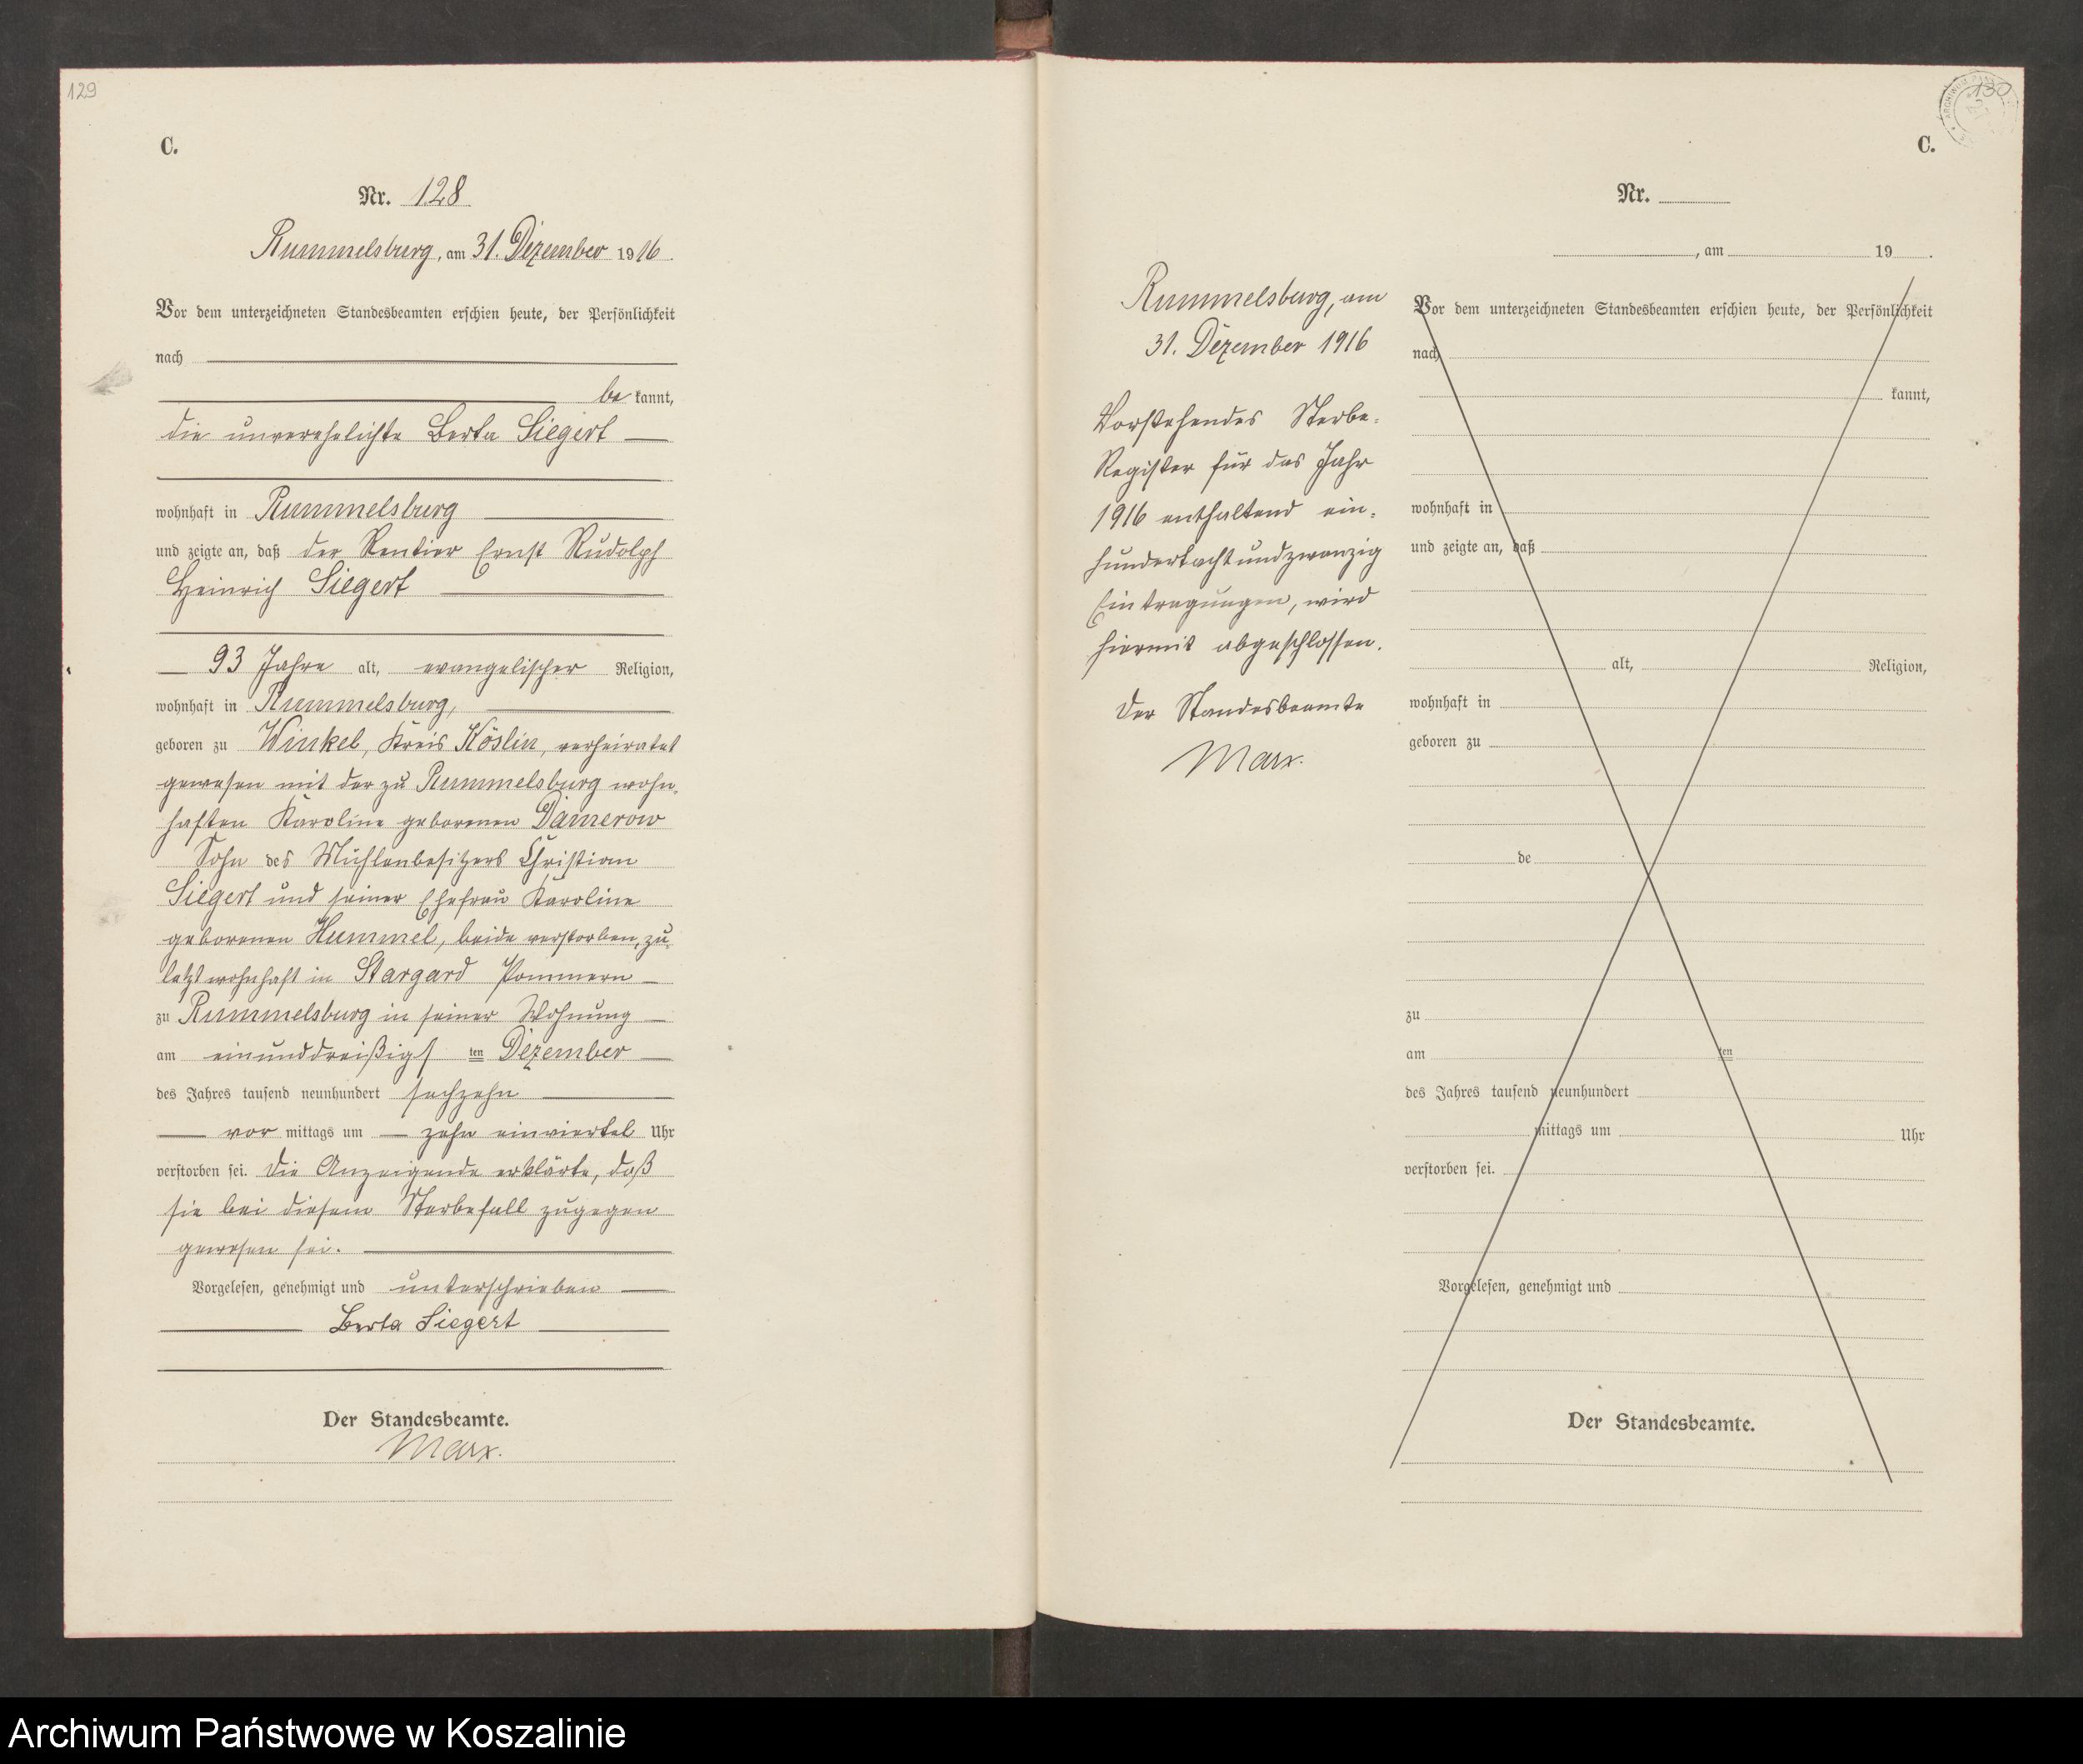 129
C.
Nr. 128
Rummelsburg, am 31. Dezember 1916.
Vor dem unterzeichneten Standesbeamten erschien heute, der Persönlichkeit
nach
be kannt,
die unverehelichte Berta Siegert
wohnhaft in Rummelsburg
und zeigte an, daß der Rentier Ernst Rudolph
Heinrich Siegert
93 Jahre alt, evangelischer Religion,
wohnhaft in Rummelsburg,
geboren zu Winkel, Kreis Köslin, verheiratet
gewesen mit der zu Rummelsburg wohn-
haften Karoline geborenen Damerow
Sohn des Mühlenbesitzers Christian
Siegert und seiner Ehefrau Karoline
geborenen Hummel, beide verstorben, zu-
letzt wohnhaft in Stargard Pommern
zu Rummelsburg in seiner Wohnung
am einunddreißigs ten Dezember
des Jahres tausend neunhundert sechzehn
vor mittags um zehn einviertel Uhr
verstorben sei. Die Anzeigende erklärte, daß
sie bei diesem Sterbefall zugegen
gewesen sei.
Vorgelesen, genehmigt und unterschrieben
Berta Siegert
Der Standesbeamte.
Marx.
130
C.
Rummelsburg, am
31. Dezember 1916
Vorstehendes Sterbe-
Register für das Jahr
1916 enthaltend ein-
hundertachtundzwanzig
Eintragungen, wird
hiermit abgeschlossen.
Der Standesbeamte
Marx.
Nr.
, am 19 .
Vor dem unterzeichneten Standesbeamten erschien heute, der Persönlichkeit
nach
kannt,
wohnhaft in
und zeigte an, daß
alt, Religion,
wohnhaft in
geboren zu
de
zu
am ten
des Jahres tausend neunhundert
mittags um Uhr
verstorben sei.
Vorgelesen, genehmigt und
Der Standesbeamte.
Archiwum Państwowe w Koszalinie